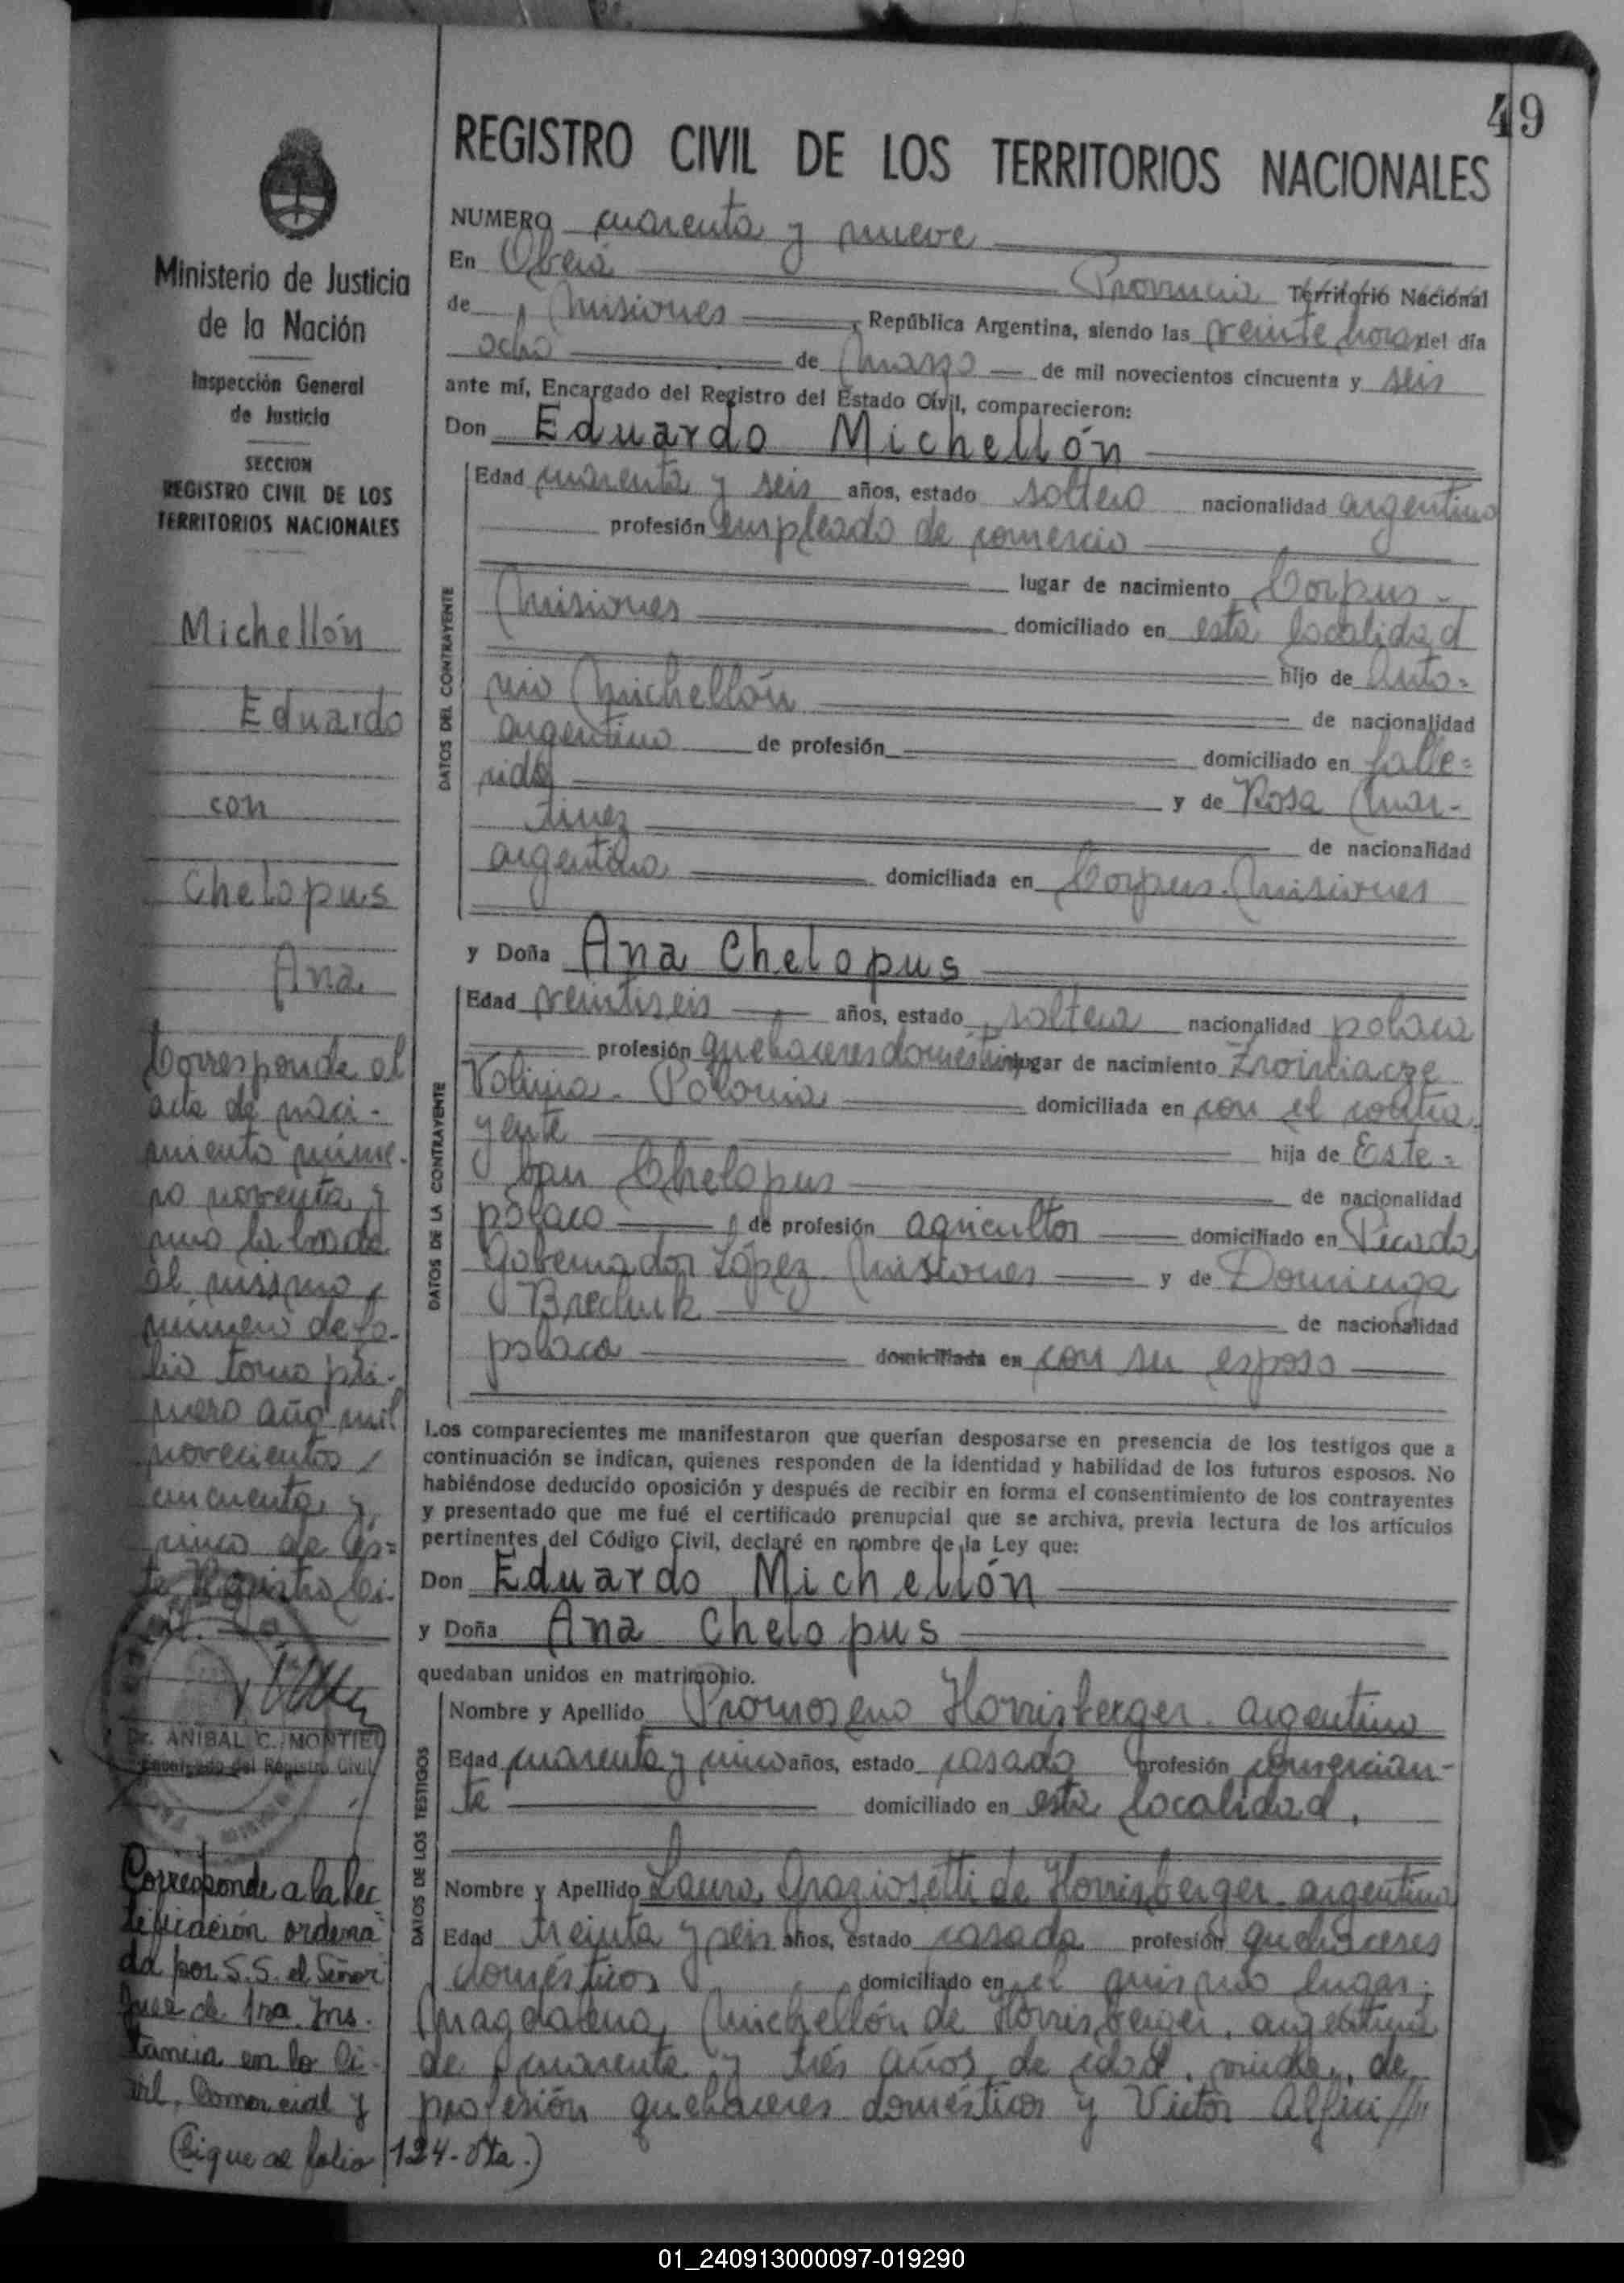 49
REGISTRO CIVIL DE LOS TERRITORIOS NACIONALES
Ministerio de Justicia
de la Nación
Inspección General
de Justicia
SECCION
REGISTRO CIVIL DE LOS
TERRITORIOS NACIONALES
Michellón
Eduardo
con
Chelopus
Ana
Corresponde al
acta de naci-
miento núme-
ro noventa y
uno labrada
al mismo
número de fo-
lio tomo pri-
mero año mil
novecientos
cincuenta y
cinco de és=
te Registro Ci-
vil.
Dr. ANIBAL C. MONTIEL
Encargado del Registro Civil
Corresponde a la Rec
tificación ordena
da por S.S. el Señor
Juez de 1ra. Ins.
tancia en lo Ci-
vil, Comercial y
(Sigue al folio 124-vta.)
NUMERO cuarenta y nueve
En Oberá Provincia Territorio Nacional
de Misiones, República Argentina, siendo las veinte horas del día
ocho de Marzo de mil novecientos cincuenta y seis
ante mí, Encargado del Registro del Estado Civil, comparecieron:
Don Eduardo Michellón
DATOS DEL CONTRAYENTE
Edad cuarenta y seis años, estado soltero nacionalidad argentino
profesión empleado de comercio
lugar de nacimiento Corpus-
Misiones domiciliado en esta localidad
hijo de Anto=
nio Michellón de nacionalidad
argentino de profesión domiciliado en falle=
cido y de Rosa Mar-
tinez de nacionalidad
argentina domiciliada en Corpus-Misiones
y Doña Ana Chelopus
DATOS DE LA CONTRAYENTE
Edad veintiseis años, estado soltera nacionalidad polaca
profesión quehaceres domésticos lugar de nacimiento
Volinia - Polonia domiciliada en con el contra
yente hija de Este=
ban Chelopus de nacionalidad
polaco de profesión agricultor domiciliado en Picada
Gobernador López Misiones y de Dominga
Brechuk de nacionalidad
polaca domiciliada en con su esposo
Los comparecientes me manifestaron que querían desposarse en presencia de los testigos que a
continuación se indican, quienes responden de la identidad y habilidad de los futuros esposos. No
habiéndose deducido oposición y después de recibir en forma el consentimiento de los contrayentes
y presentado que me fué el certificado prenupcial que se archiva, previa lectura de los artículos
pertinentes del Código Civil, declaré en nombre de la Ley que:
Don Eduardo Michellón
y Doña Ana Chelopus
quedaban unidos en matrimonio.
DATOS DE LOS TESTIGOS
Nombre y Apellido Horrisberger. argentino
Edad cuarenta y cinco años, estado casado profesión comercian-
te domiciliado en esta localidad.
Nombre y Apellido Laura Graziosetti de Horrisberger argentina
Edad treinta y seis años, estado casada profesión quehaceres
domésticos domiciliado en el mismo lugar;
Magdalena Michellón de Horrisberger, argentina
de cuarenta y tres años de edad, viuda, de
profesión quehaceres domésticos y Victor
01_240913000097-019290